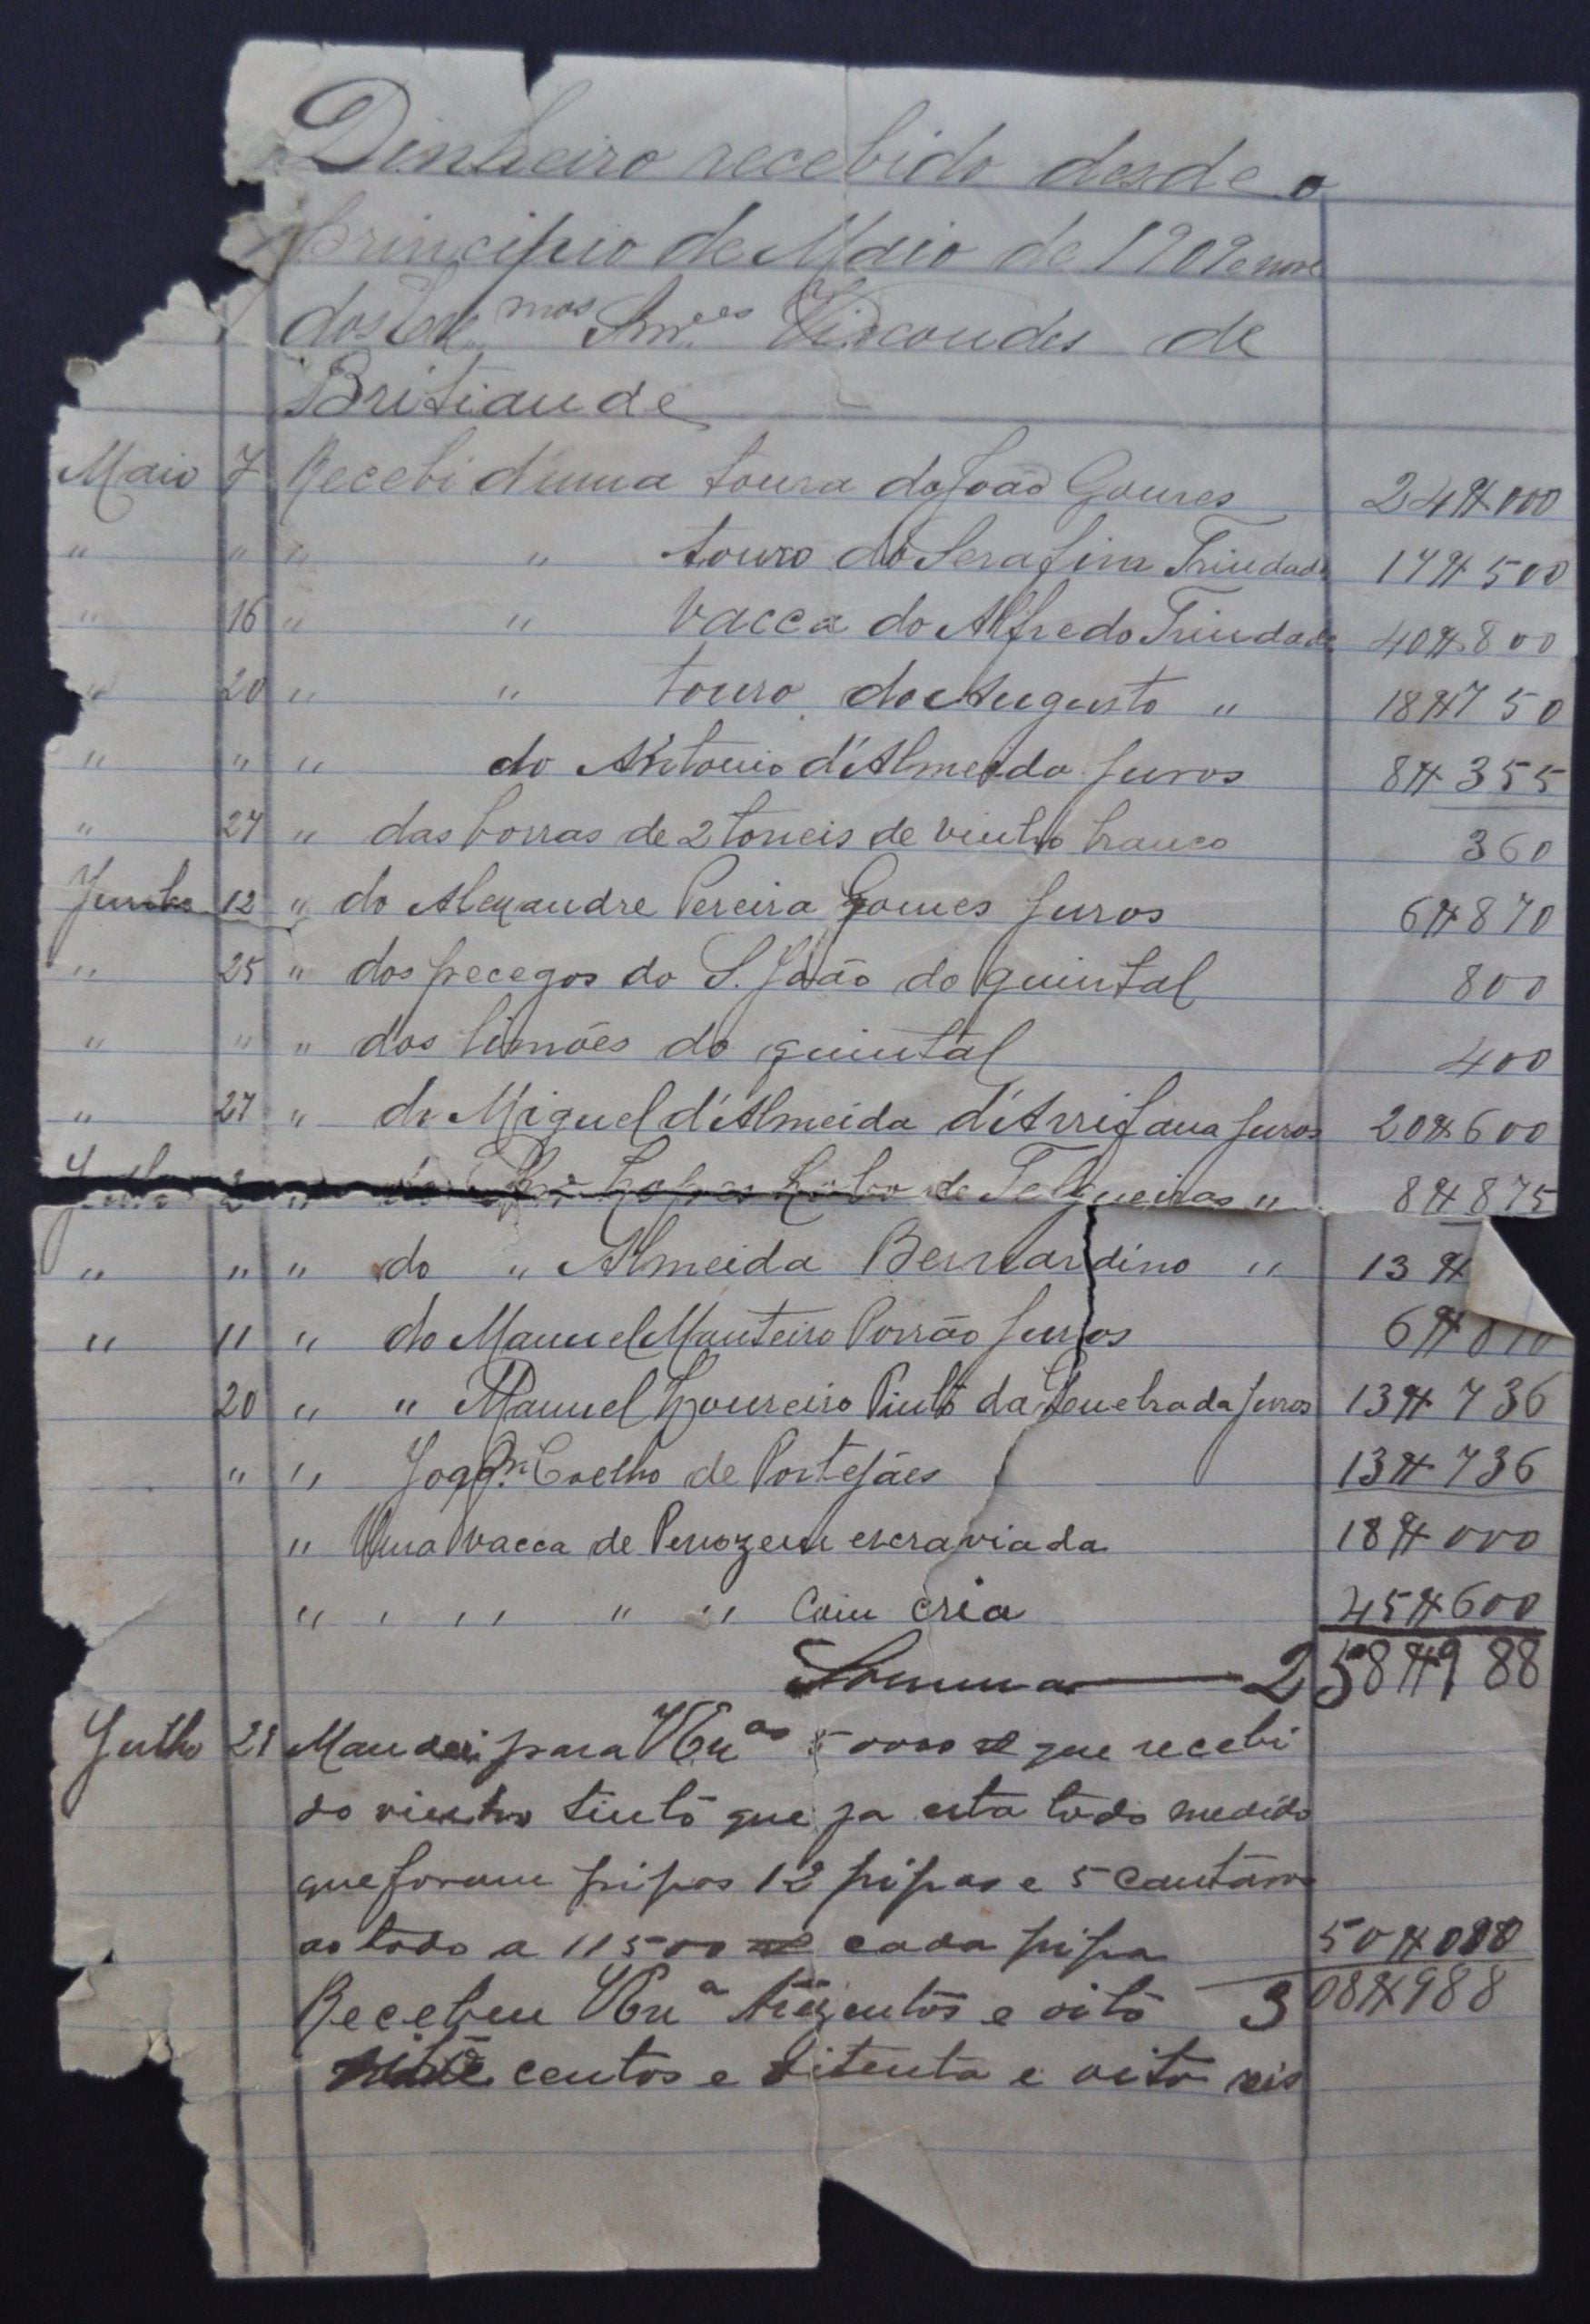 Dinheiro recebido desde o
principio de Maio de 1909
dos Ex.mos Snr.es Viscondes de
Britiande
Maio 7 Recebi d'uma toura do João Gomes 24$000
" " " " touro do Serafim Trindade 17$500
" 16 " " vacca do Alfredo Trindade 40$800
" 20 " " touro do Augusto " 18$750
" " " do Antonio d'Almeida Juros 8$355
" 27 " das borras de 2 toneis de vinho branco 360
Junho 12 " do Alexandre Pereira Gomes Juros 6$870
" 25 " dos pecegos do S. João do quintal 800
" " " dos limões do quintal 400
" 27 " do Miguel d'Almeida d'Arrifana Juros 20$600
2 " Lopes Lobo de Felgueiras " 8$875
" " " do " Almeida Bernardino " 13$
" 11 " do Manuel Manteiro Porrão Juros 6$870
20 " " Manuel Loureiro Pinto da Juros 13$736
" " Joaq.m Coelho de Portejães 13$736
" Uma vacca de Penozem escraviada 18$000
" " " " " Com cria 45$600
Somma 258$988
Julho 28 Mandei para VEx.as 50000 rs que recebi
do vinho tinto que ja esta todo medido
que foram pipas 12 pipas e 5 Cantaros
ao todo a 11500 rs cada pipa 50$000
Recebeu VEx.a trezentos e oito 308$988
centos e oitenta e oito reis